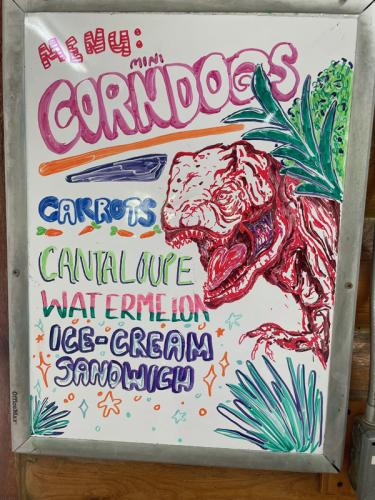 MENU:
MINI
CORNDOGS
CARROTS
CANTALOUPE
WATERMELON
ICE-CREAM
SANDWICH
OfficeMax